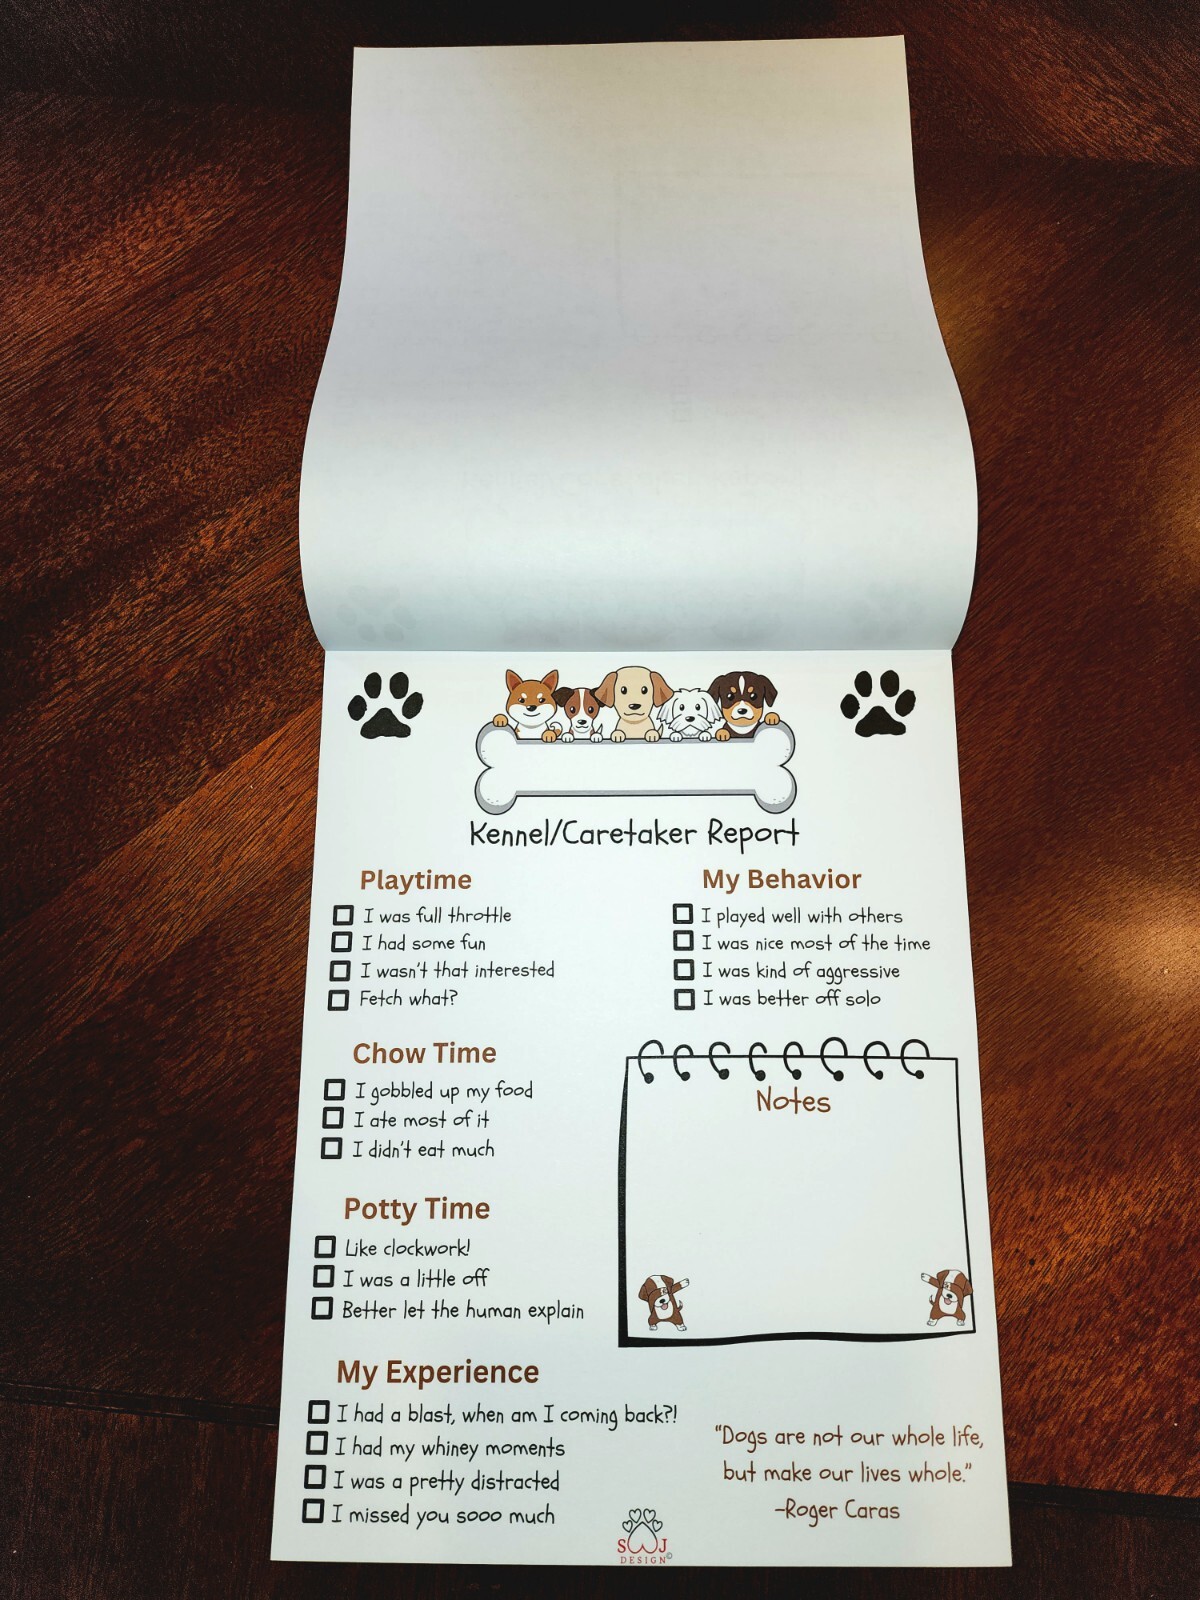 Kennel/Caretaker Report
Playtime
I was full throttle
I had some fun
I wasn't that interested
Fetch what?
My Behavior
I played well with others
I was nice most of the time
I was kind of aggressive
I was better off solo
Chow Time
I gobbled up my food
I ate most of it
I didn't eat much
Notes
Potty Time
Like clockwork!
I was a little off
Better let the human explain
My Experience
I had a blast, when am I coming back?!
I had my whiney moments
I was a pretty distracted
I missed you sooo much
"Dogs are not our whole life,
but make our lives whole."
-Roger Caras
S J
DESIGN©